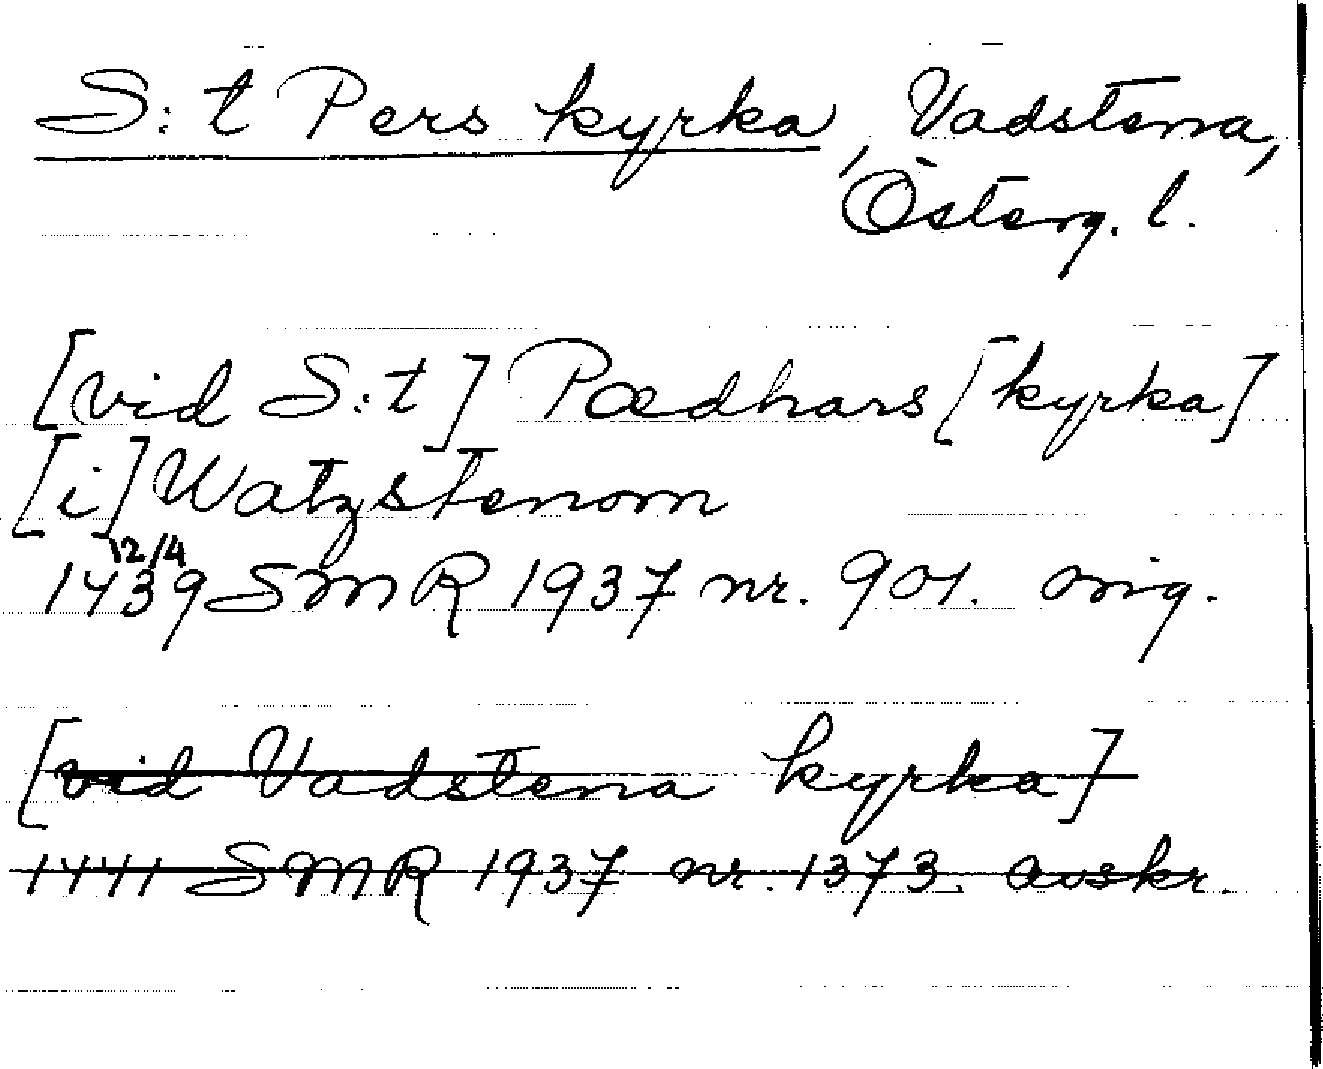 S:t Pers kyrka, Vadstena,
Österg. l.
[vid S:t] Pædhars [kyrka]
[i] Watzstenom
12/4
1439 SMR 1937 nr. 901. orig.
[vid Vadstena kyrka]
1441 SMR 1937 nr. 1373. avskr.